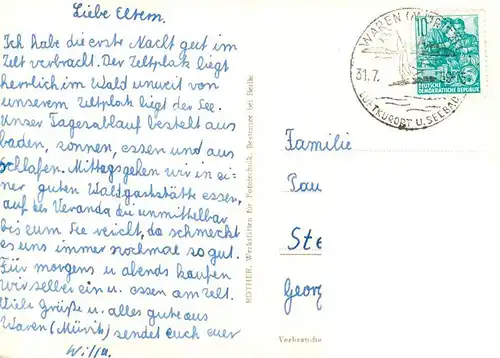 Liebe Eltern.
Ich habe die erste Nacht gut im
Zelt verbracht. Der Zeltplatz liegt
herrlich im Wald unweit von
unserem Zeltplatz liegt der See.
Unser Tagesablauf besteht aus
baden, sonnen, essen und aus
schlafen. Mittags gehen wir in ei-
ner guten Waldgaststätte essen,
auf der Veranda die unmittelbar
bis zum See reicht, da schmeckt
es uns immer nochmal so gut.
Für morgens u. abends kaufen
wir selber ein u. essen am Zelt.
Viele Grüße u. alles gute aus
Waren (Müritz) sendet euch euer
Willy.
ROTHER, Werkstätten für Fototechnik,
WAREN (MÜRITZ)
31.7.
LUFTKURORT U. SEEBAD
10
DEUTSCHE
DEMOKRATISCHE REPUBLIK
Familie
Pau
Ste
Georg
Verbrauche